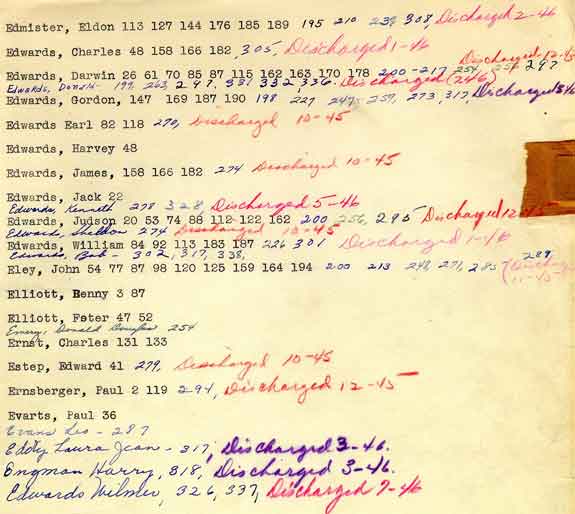 Edmister, Eldon 113 127 144 176 185 189 195 210 239 308, Discharged 2-46
Edwards, Charles 48 158 166 182, 305, Discharged 1-46
Discharged 12-45
Edwards, Darwin 26 61 70 85 87 115 162 163 170 178 200 - 217 254, 297
Edwards, Donald - 199, 263, 297. 331 332, 336. Discharged (246)
Edwards, Gordon, 147 169 187 190 198 227 247 259, 273, 317, Discharged 3-46
Edwards Earl 82 118 270, Discharged 10-45
Edwards, Harvey 48
Edwards, James, 158 166 182 274 Discharged 10-45
Edwards, Jack 22
Edwards, Kenneth 278 328, Discharged 5-46
Edwards, Judson 20 53 74 88 112 122 162 200 256, 295 Discharged 12-45
Edwards Sheldon 274 Discharged 10-45
Edwards, William 84 92 113 183 187 226 301 Discharged 1-46
Edwards, Bob - 302, 317, 338,
289,
Eley, John 54 77 87 98 120 125 159 164 194 200 213 248, 271, 285 (Discharged
11-45
Elliott, Benny 3 87
Elliott, Peter 47 52
Emery, Donald Douglas 254
Ernst, Charles 131 133
Estep, Edward 41 279, Discharged 10-45
Ernsberger, Paul 2 119 294, Discharged 12-45
Evarts, Paul 36
Evans Leo - 287
Eddy Laura Jean - 317, Discharged 3-46.
Engman Harry, 318, Discharged 3-46.
Edwards Wilmer, 326, 337, Discharged 7-46